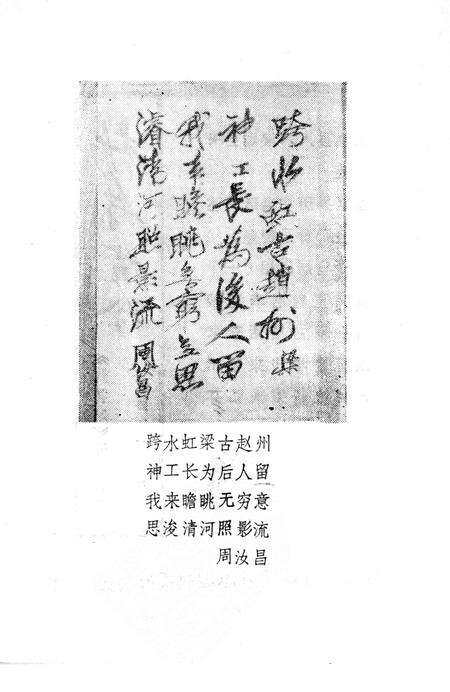 跨水虹古趙州梁
神工長為後人留
我来瞻眺无窮意思
濬清河照景流 周汝昌
跨水虹梁古赵州
神工长为后人留
我来瞻眺无穷意
思浚清河照影流
周汝昌